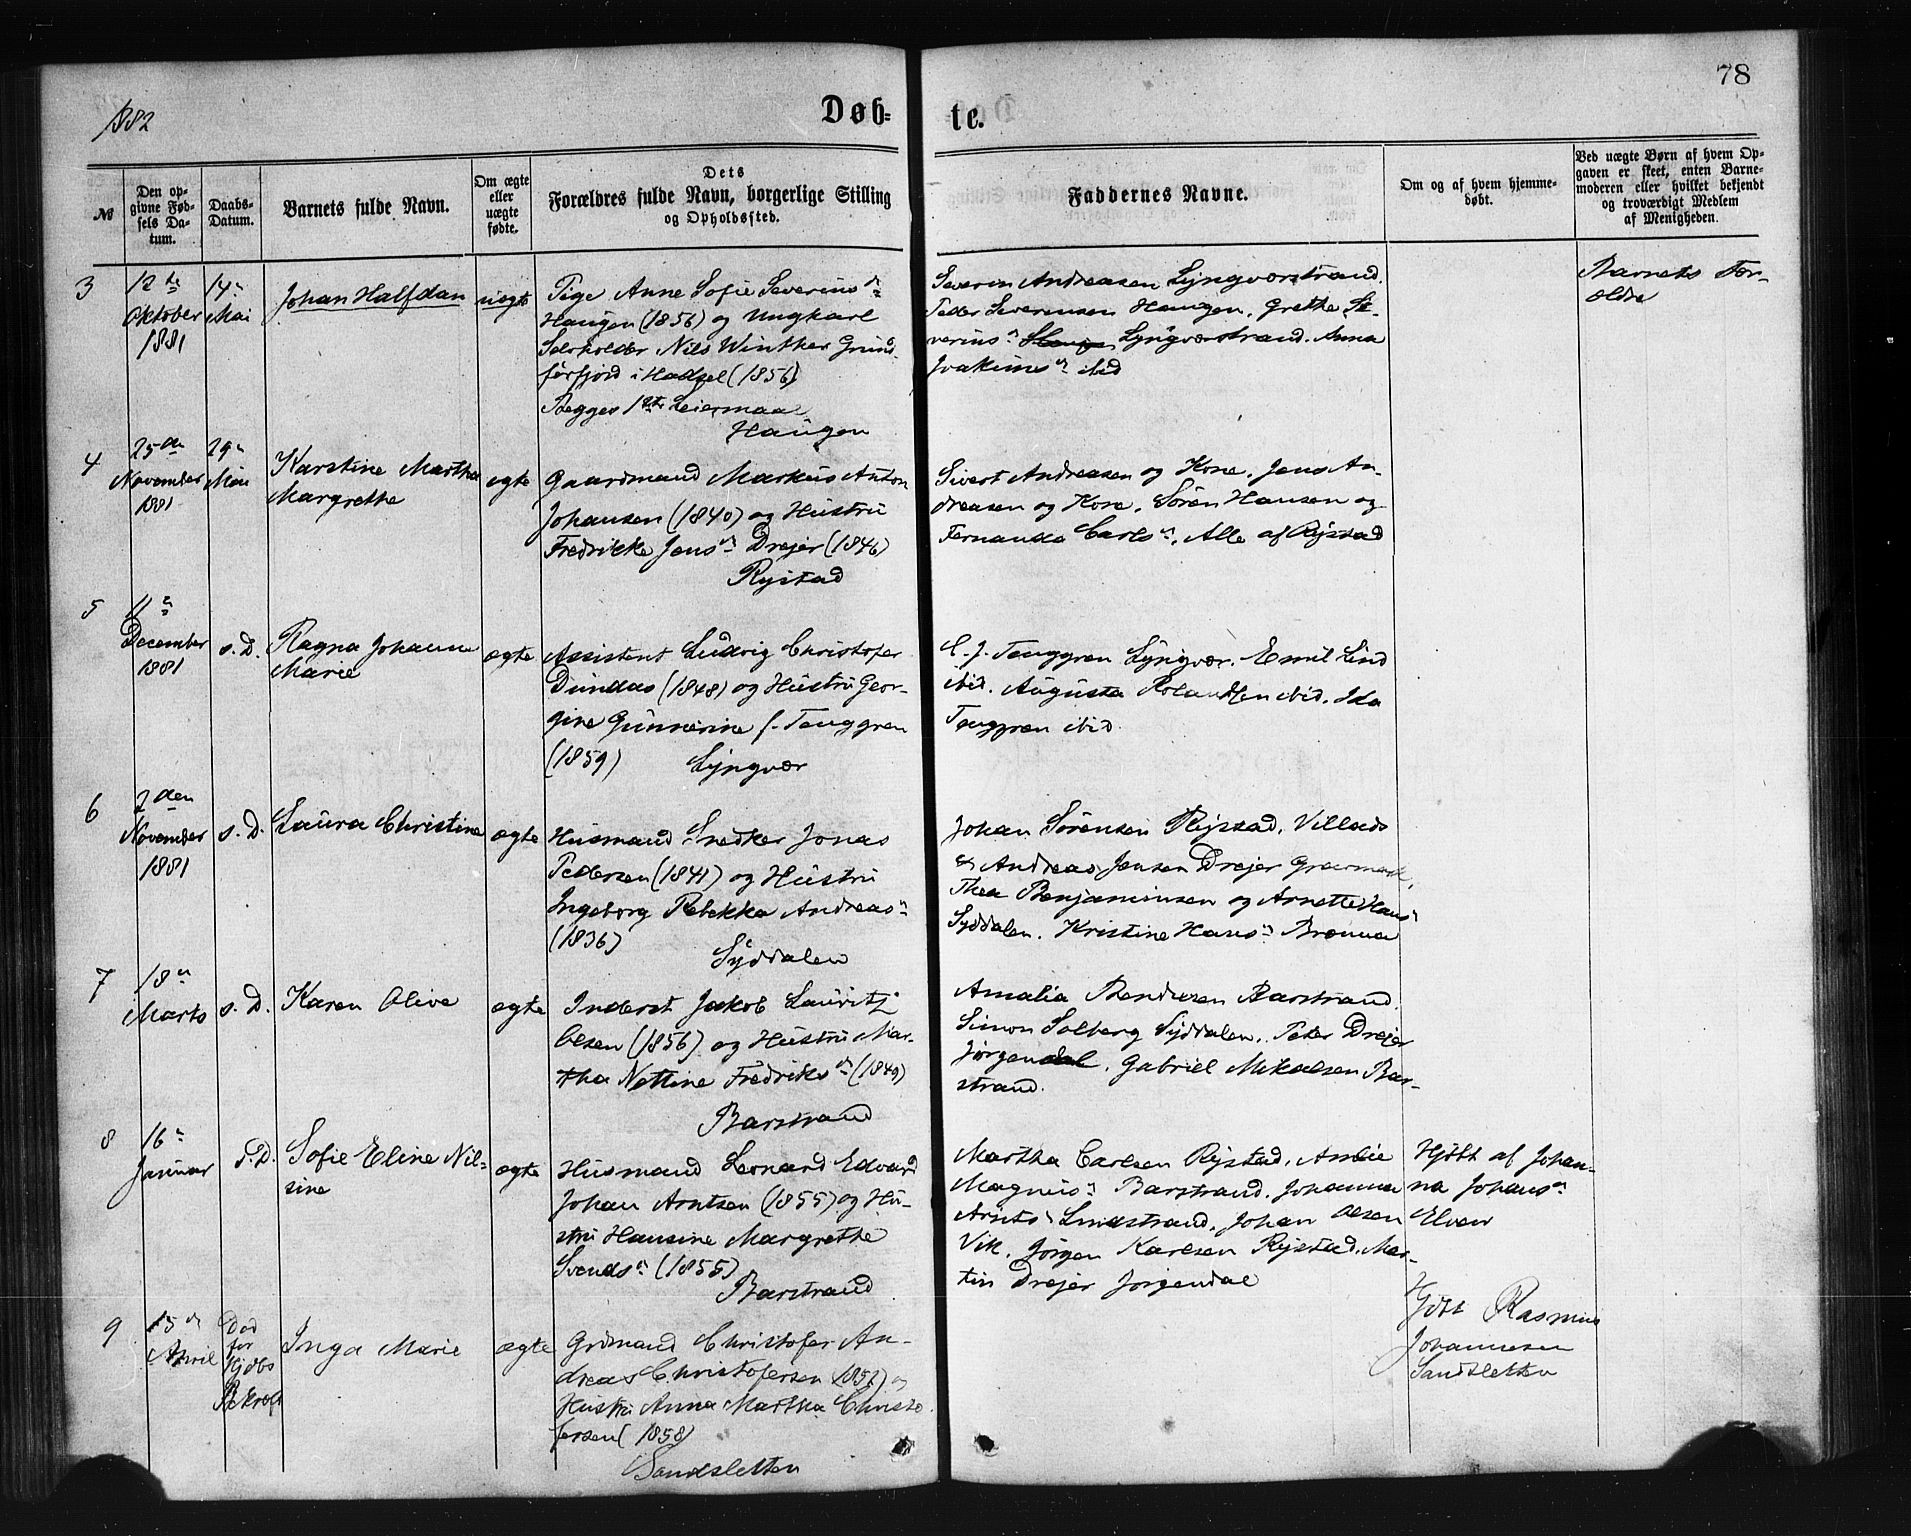 78
1882
Døb=
te.
№
Den op-
givne Fød-
sels Da-
tum.
Daabs-
Datum.
Barnets fulde Navn.
Om ægte
eller
uægte
fødte.
Dets
Forældres fulde Navn, borgerlige Stilling
og Opholdssted.
Faddernes Navne.
Om og af hvem hjemme-
døbt.
Ved uægte Børn af hvem Op-
gaven er skeet, enten Barne-
moderen eller hvilket bekjendt
og troværdigt Medlem
af Menigheden.
3
12te
Oktober
1881
14n
Mai
Johan Halfdan
uægte
Pige Anne Sofie Severinsdn
Haugen (1856) og Ungkarl
Selvholder Nils Winther Gruns
førfjord i Hadsel (1856)
Begges 1ste Leiermaal
Haugen
Severin Andreasen Lyngværstrand.
Peder Severinsen Haugen, Grethe Se-
verinsn Lyngværstrand. Anna
Joakimsn ibid
Barnets For-
ældre
4
25de
November
1881
29n
Mai
Karstine Martha
Margrethe
ægte
Gaardmand Markus Anton
Johansen (1840) og Hustru
Fredrikke Jensn Drejer (1846)
Rystad
Sivert Andreasen og Kone, Jens An-
dreasen og Kone, Sören Hansen og
Fernanda Carlsn, Alle af Rystad
5
11n
December
1881
s. D.
Ragna Johanne
Marie
ægte
Assistent Ludvig Christofer
Dundas (1848) og Hustru Geor-
gine Gunnerine f. Tenggren
(1859) Lyngvær
C. J. Tenggren Lyngvær. Emil Lind
ibid. Augusta Rolandsen ibid. Ida
Tenggren ibid.
6
2den
November
1881
s. D.
Laura Christine
ægte
Husmand Snedker Jonas
Pedersen (1841) og Hustru
Ingeborg Rebekka Andreasn
(1836)
Syddalen
Johan Sörensen Rystad, Villads
& Andreas Jensen Drejer
Thea Benjaminsen og Arnette Hans
Syddalen. Kristine Hansn Brenna
7
18n
Marts
s. D.
Karen Olive
ægte
Inderst Jakob Lauritz
Olsen (1856) og Hustru Mar-
tha Nettine Fredriksn (1849)
Barstrand
Amalia Bendiksen Barstrand.
Simon Solberg Syddalen, Peter Drejer
Jörgendal, Gabriel Mikalsen Bar-
strand.
8
16n
Januar
s. D.
Sofie Eline Nil=
sine
ægte
Husmand Leonard Edvard
Johan Arntsen (1855) og Hu-
stru Hansine Margrethe
Svendsn (1855)
Barstrand
Martha Carlsen Rystad,
Magnusn Barstrand, Johanna
Arnts Lindstrand, Johan Olsen
Vik, Jörgen Karlsen Rystad. Mar-
tin Drejer Jorgendal
Hjdbt af Johan-
na Johansn
Elven
9
15de
April
Död
för
Hjdbs
Bekræft
Inga Marie
ægte
Grdmand Christofer An-
dreas Christofersen (1852) og
Hustru Anna Martha Christo
fersen (1858)
Sandsletten
Hjdbt Rasmus
Johannesen
Sandsletten